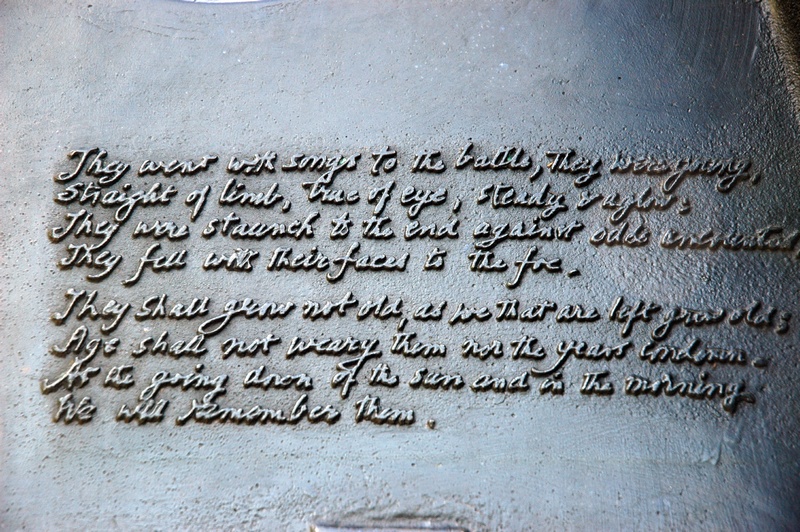 They went with songs to the battle, They were young,
Straight of limb, true of eye, steady & aglow;
They were staunch to the end against odds uncounted,
They fell with their faces to the foe.
They shall grow not old, as we that are left grow old;
Age shall not weary them nor the years condemn.
At the going down of the sun and in the morning
We will remember them.